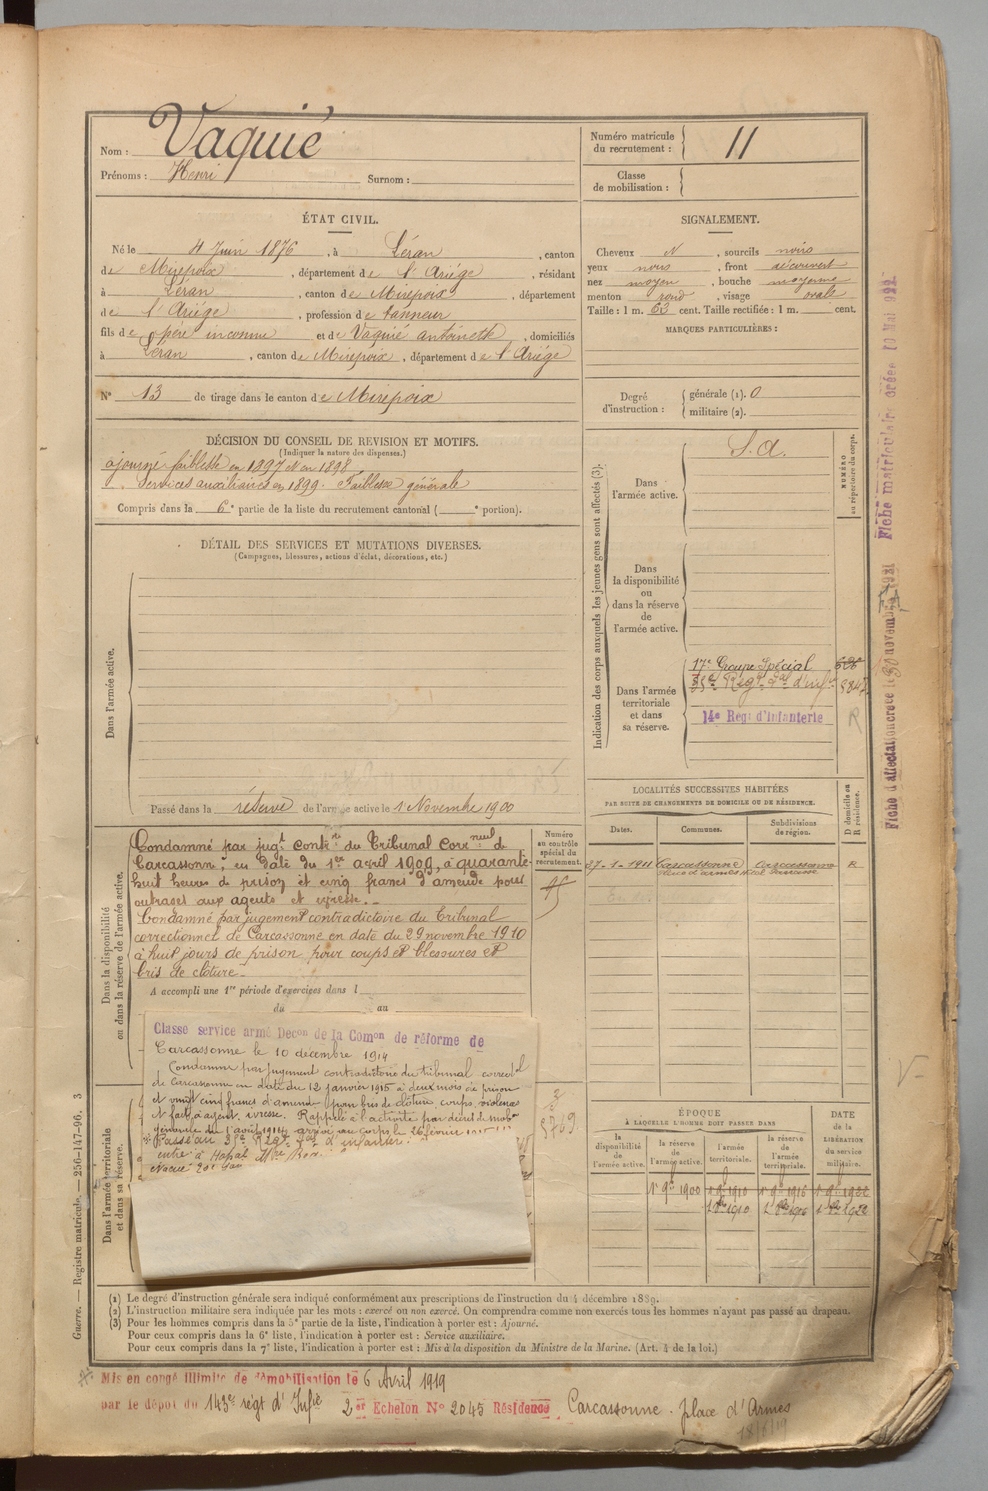 Nom : Vaquié
Prénoms : Henri Surnom :
Numéro matricule du recrutement : 11
Classe de mobilisation :
ÉTAT CIVIL.
Né le 4 Juin 1876, à Léran, canton
de Mirepoix, département de l'Ariège, résidant
à Léran, canton de Mirepoix, département
de l'Ariège, profession de tanneur
fils de père inconnu et de Vaquié antoinette, domiciliés
à Léran, canton de Mirepoix, département de l'Ariège
N° 13 de tirage dans le canton de Mirepoix
SIGNALEMENT.
Cheveux N, sourcils noirs
yeux noirs, front découvert
nez moyen, bouche moyenne
menton rond, visage ovale
Taille : 1 m. 63 cent. Taille rectifiée : 1 m. cent.
MARQUES PARTICULIÈRES :
Degré d'instruction : générale (1). 0
militaire (2).
DÉCISION DU CONSEIL DE REVISION ET MOTIFS.
(Indiquer la nature des dispenses.)
ajourné faiblesse en 1897 et en 1898
Services auxiliaires en 1899. Faiblesse générale
Compris dans la 6e partie de la liste du recrutement cantonal ( e portion).
DÉTAIL DES SERVICES ET MUTATIONS DIVERSES.
(Campagnes, blessures, actions d'éclat, décorations, etc.)
Dans l'armée active.
Passé dans la réserve de l'armée active le 1 Novembre 1900
Indication des corps auxquels les jeunes gens sont affectés (3).
NUMÉRO au répertoire du corps.
Dans l'armée active.
S. A.
Dans la disponibilité ou dans la réserve de l'armée active.
Dans l'armée territoriale et dans sa réserve.
17e Groupe Spécial
14e Régt d'Infanterie
R
Dans la disponibilité ou dans la réserve de l'armée active.
Condamné par jugt contre du Tribunal Correnel de
Carcassonne, en date du 1er avril 1909, à quarante-
huit heures de prison et cinq francs d'amende pour
outrages aux agents et ivresse.
Condamné par jugement contradictoire du Tribunal
correctionnel de Carcassonne en date du 29 novembre 1910
à huit jours de prison pour coups et blessures et
bris de cloture.
A accompli une 1re période d'exercices dans l
du au
Numéro au contrôle spécial du recrutement.
LOCALITÉS SUCCESSIVES HABITÉES
PAR SUITE DE CHANGEMENTS DE DOMICILE OU DE RÉSIDENCE.
Dates. Communes. Subdivisions de région. D domicile ou R résidence.
27-1-1911 Carcassonne Carcassonne R
Classe service armé Décon de la Comon de réforme de
Carcassonne le 10 décembre 1914
Condamné par jugement contradictoire du tribunal correctel
de Carcassonne en date du 12 janvier 1915 à deux mois de prison
et vingt cinq francs d'amende pour bris de clôture, coups, violences
et à agent, ivresse. Rappelé à l'activité par décret de mobon
générale du 1 août 1914. arrivé au corps le 26 février
Passé au Régt d'infanterie.
Dans l'armée territoriale et dans sa réserve.
ÉPOQUE
À LAQUELLE L'HOMME DOIT PASSER DANS
la disponibilité de l'armée active. la réserve de l'armée active. l'armée territoriale. la réserve de l'armée territoriale.
DATE de la LIBÉRATION du service militaire.
1er 9bre 1900 1er 9bre 1910 1er 9bre 1916 1er 9bre 1922
(1) Le degré d'instruction générale sera indiqué conformément aux prescriptions de l'instruction du 4 décembre 1889.
(2) L'instruction militaire sera indiquée par les mots : exercé ou non exercé. On comprendra comme non exercés tous les hommes n'ayant pas passé au drapeau.
(3) Pour les hommes compris dans la 5e partie de la liste, l'indication à porter est : Ajourné.
Pour ceux compris dans la 6e liste, l'indication à porter est : Service auxiliaire.
Pour ceux compris dans la 7e liste, l'indication à porter est : Mis à la disposition du Ministre de la Marine. (Art. 4 de la loi.)
Mis en congé illimité de démobilisation le 6 Avril 1919
par le dépot du 143e régt d'Infie 2er Echelon N° 2045 Résidence Carcassonne. place d'Armes
Guerre. — Registre matricule. — 256-147-96. 3
Fiche d'affectation créée le 30 novembre 1921
Fiche matriculaire créée 10 Mai 1922